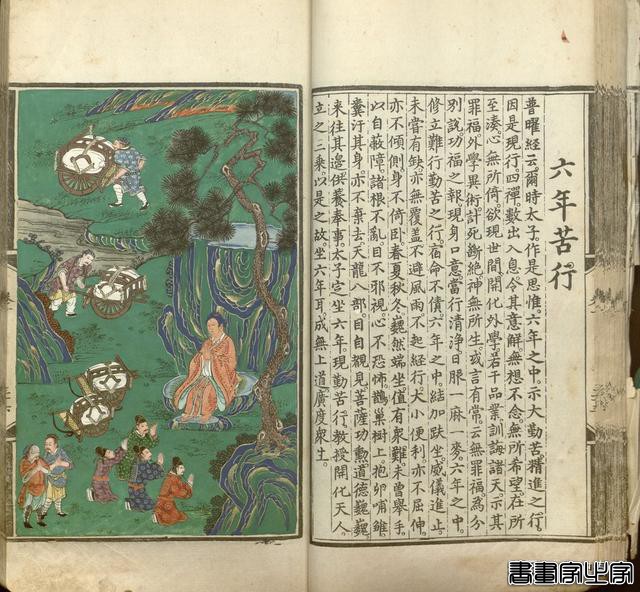 六年苦行
普曜經云爾時太子作是思惟六年之中示大勤苦精進之行
因是現行四禪數出入息令其意解無想不念無所希望在所
至湊心無所倚欲現世間開化外學若干品業訓誨諸天示其
罪福外學異術計死斷絕神無所生或言有常云無罪福為分
別說功福之報現身口意當行清淨日服一麻一麥六年之中
修立難行勤苦之行宿命不債六年之中結加趺坐威儀進止
未嘗有缺亦無覆蓋不避風雨不起經行大小便利亦不屈伸
亦不傾側身不倚臥春夏秋冬巍然端坐值有衆難未曾舉手
以自蔽障諸根不亂目不邪視心不恐怖鵲巢樹上抱卵哺雛
糞汙其身亦不棄去天龍八部目自觀見菩薩功勳道德巍巍
來往其邊供養奉事太子宴坐六年現勤苦行教授開化天人
立之三乘以是之故坐六年耳成無上道廣度衆生
書畫字典字